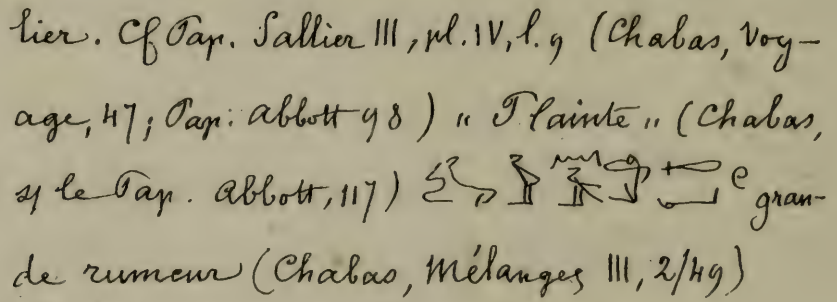 lier. Cf Pap. Sallier III, pl. IV, l. 9 (Chabas, Voy-
age, 47; Pap. Abbott 98) " Plainte " (Chabas,
le Pap. Abbott, 117) gran-
de rumeur (Chabas, Mélanges III, 2/49)